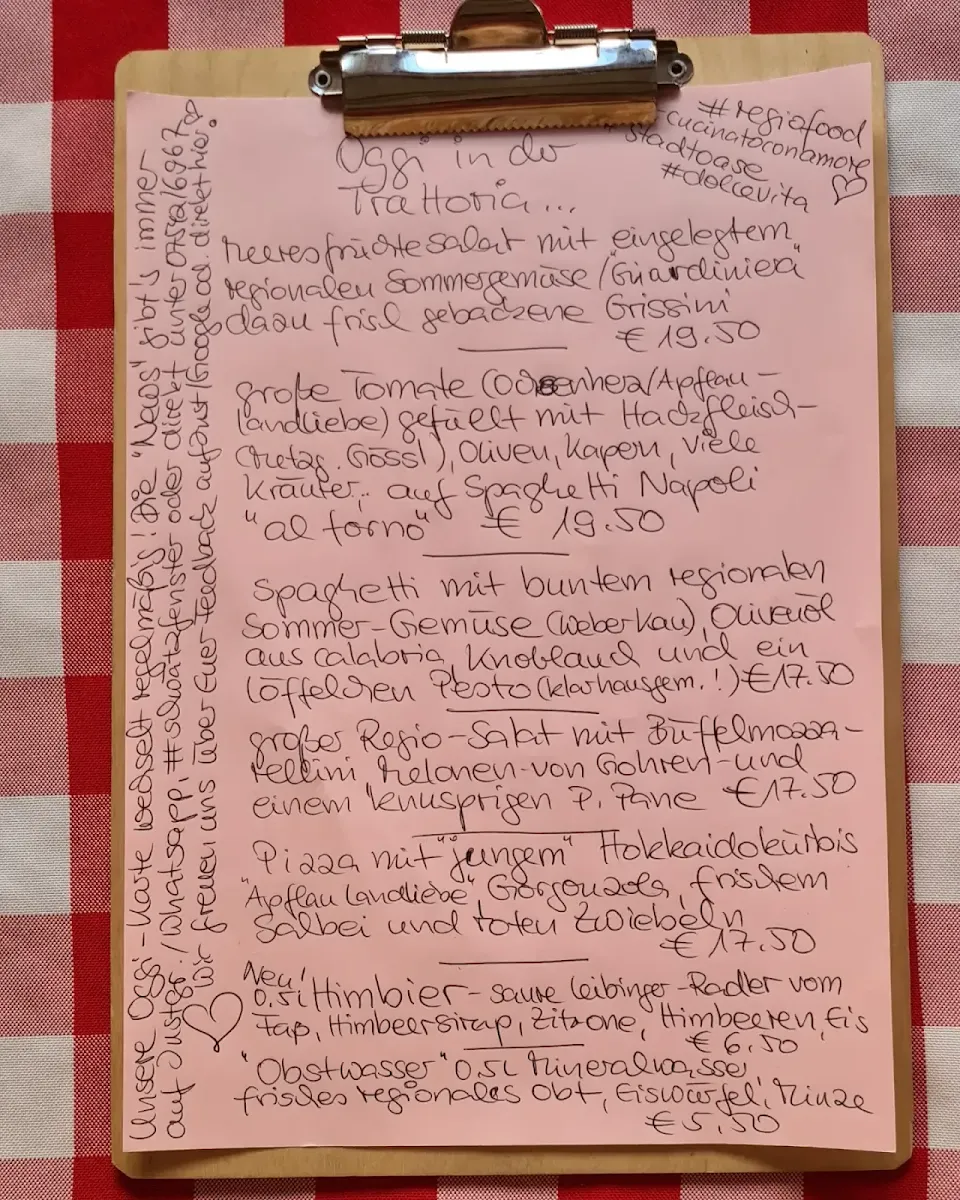 Oggi in der
Trattoria...
#regiofood
cucinatoconamore
stadtoase
#dolcevita
Meeresfrüchtesalat mit eingelegtem
regionalen Sommergemüse/"Giardiniera"
dazu frisch gebackene Grissini
€ 19.50
große Tomate (Ochsenherz/Apflau-
landliebe) gefüllt mit Hackfleisch-
(Metzg. Gössl), Oliven, Kapern, viele
Kräuter.. auf Spaghetti Napoli
"al forno" € 19.50
Spaghetti mit buntem regionalen
Sommer-Gemüse (Weber Kau), Olivenöl
aus Calabria, Knoblauch und ein
Löffelchen Pesto (klar hausgem.!) € 17.50
großer Regio-Salat mit Büffelmozza-
rellini Melonen-von Gohren-und
einem knusprigen P. Pane € 17.50
Pizza mit "jungem" Hokkaidokürbis
"Apflau Landliebe" Gorgonzola, frischem
Salbei und roten Zwiebeln
€ 17.50
Neu!
0.5L Himbier-saure Leibinger-Radler vom
Fap, Himbeersirup, Zitrone, Himbeeren, Eis
€ 6.50
"Obstwasser" 0.5L Mineralwasser,
frisches regionales Obt, Eiswürfel, Minze
€ 5.50
Unsere Oggi-Karte wechselt regelmäßig! Die "News" gibt's immer
auf Justge./Whatsapp, #schwätzfenster oder direkt unter
wir freuen uns über Euer Feedback auf Just/Google od. direkt hier.